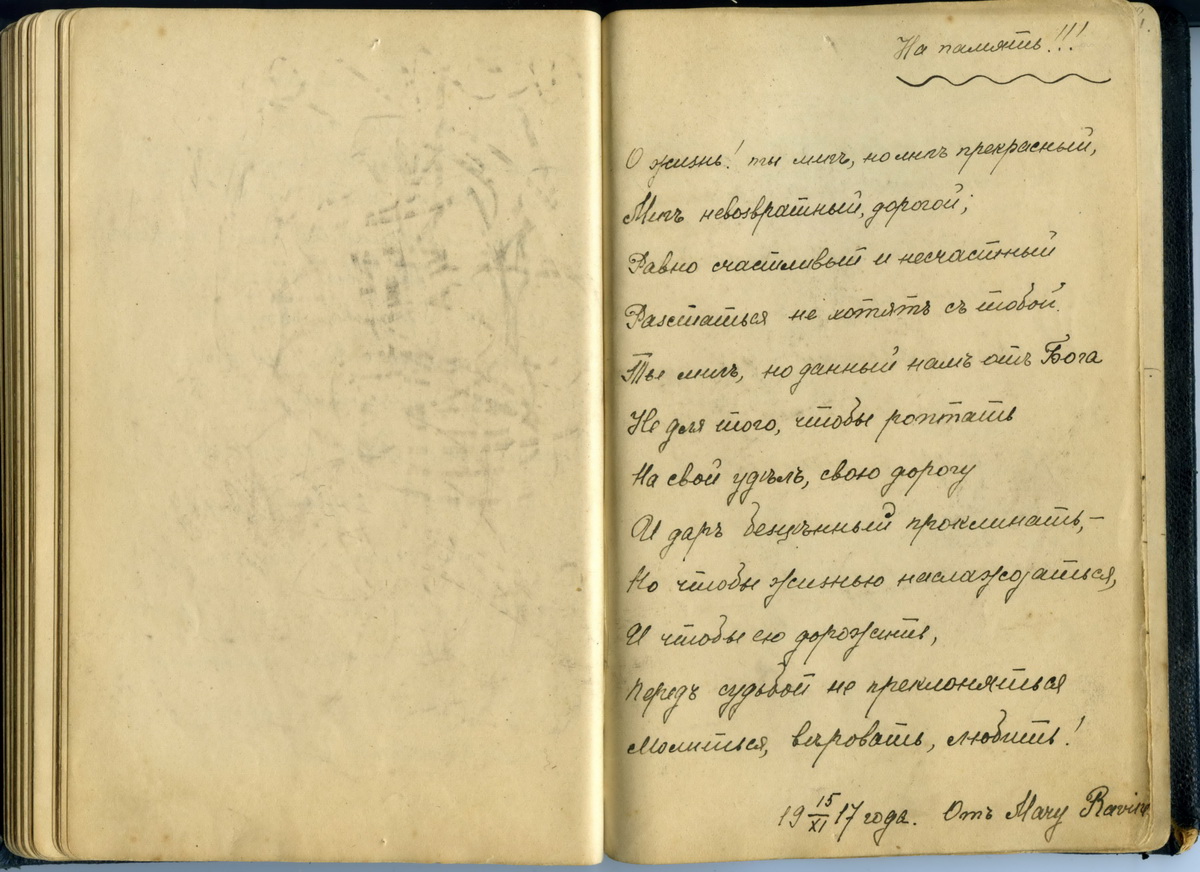 На память!!!
О жизнь! ты мигъ, но мигъ прекрасный,
Мигъ невозвратный, дорогой;
Равно счастливый и несчастный
Разстаться не хотятъ съ тобой.
Ты мигъ, но данный намъ отъ Бога
Не для того, чтобы роптать
На свой удѣлъ, свою дорогу
И даръ безцѣнный проклинать,—
Но чтобы жизнью наслаждаться,
И чтобы ею дорожить,
Передъ судьбой не преклоняться
Молиться, вѣровать, любить!
19 15/XI 17 года. Отъ Mary